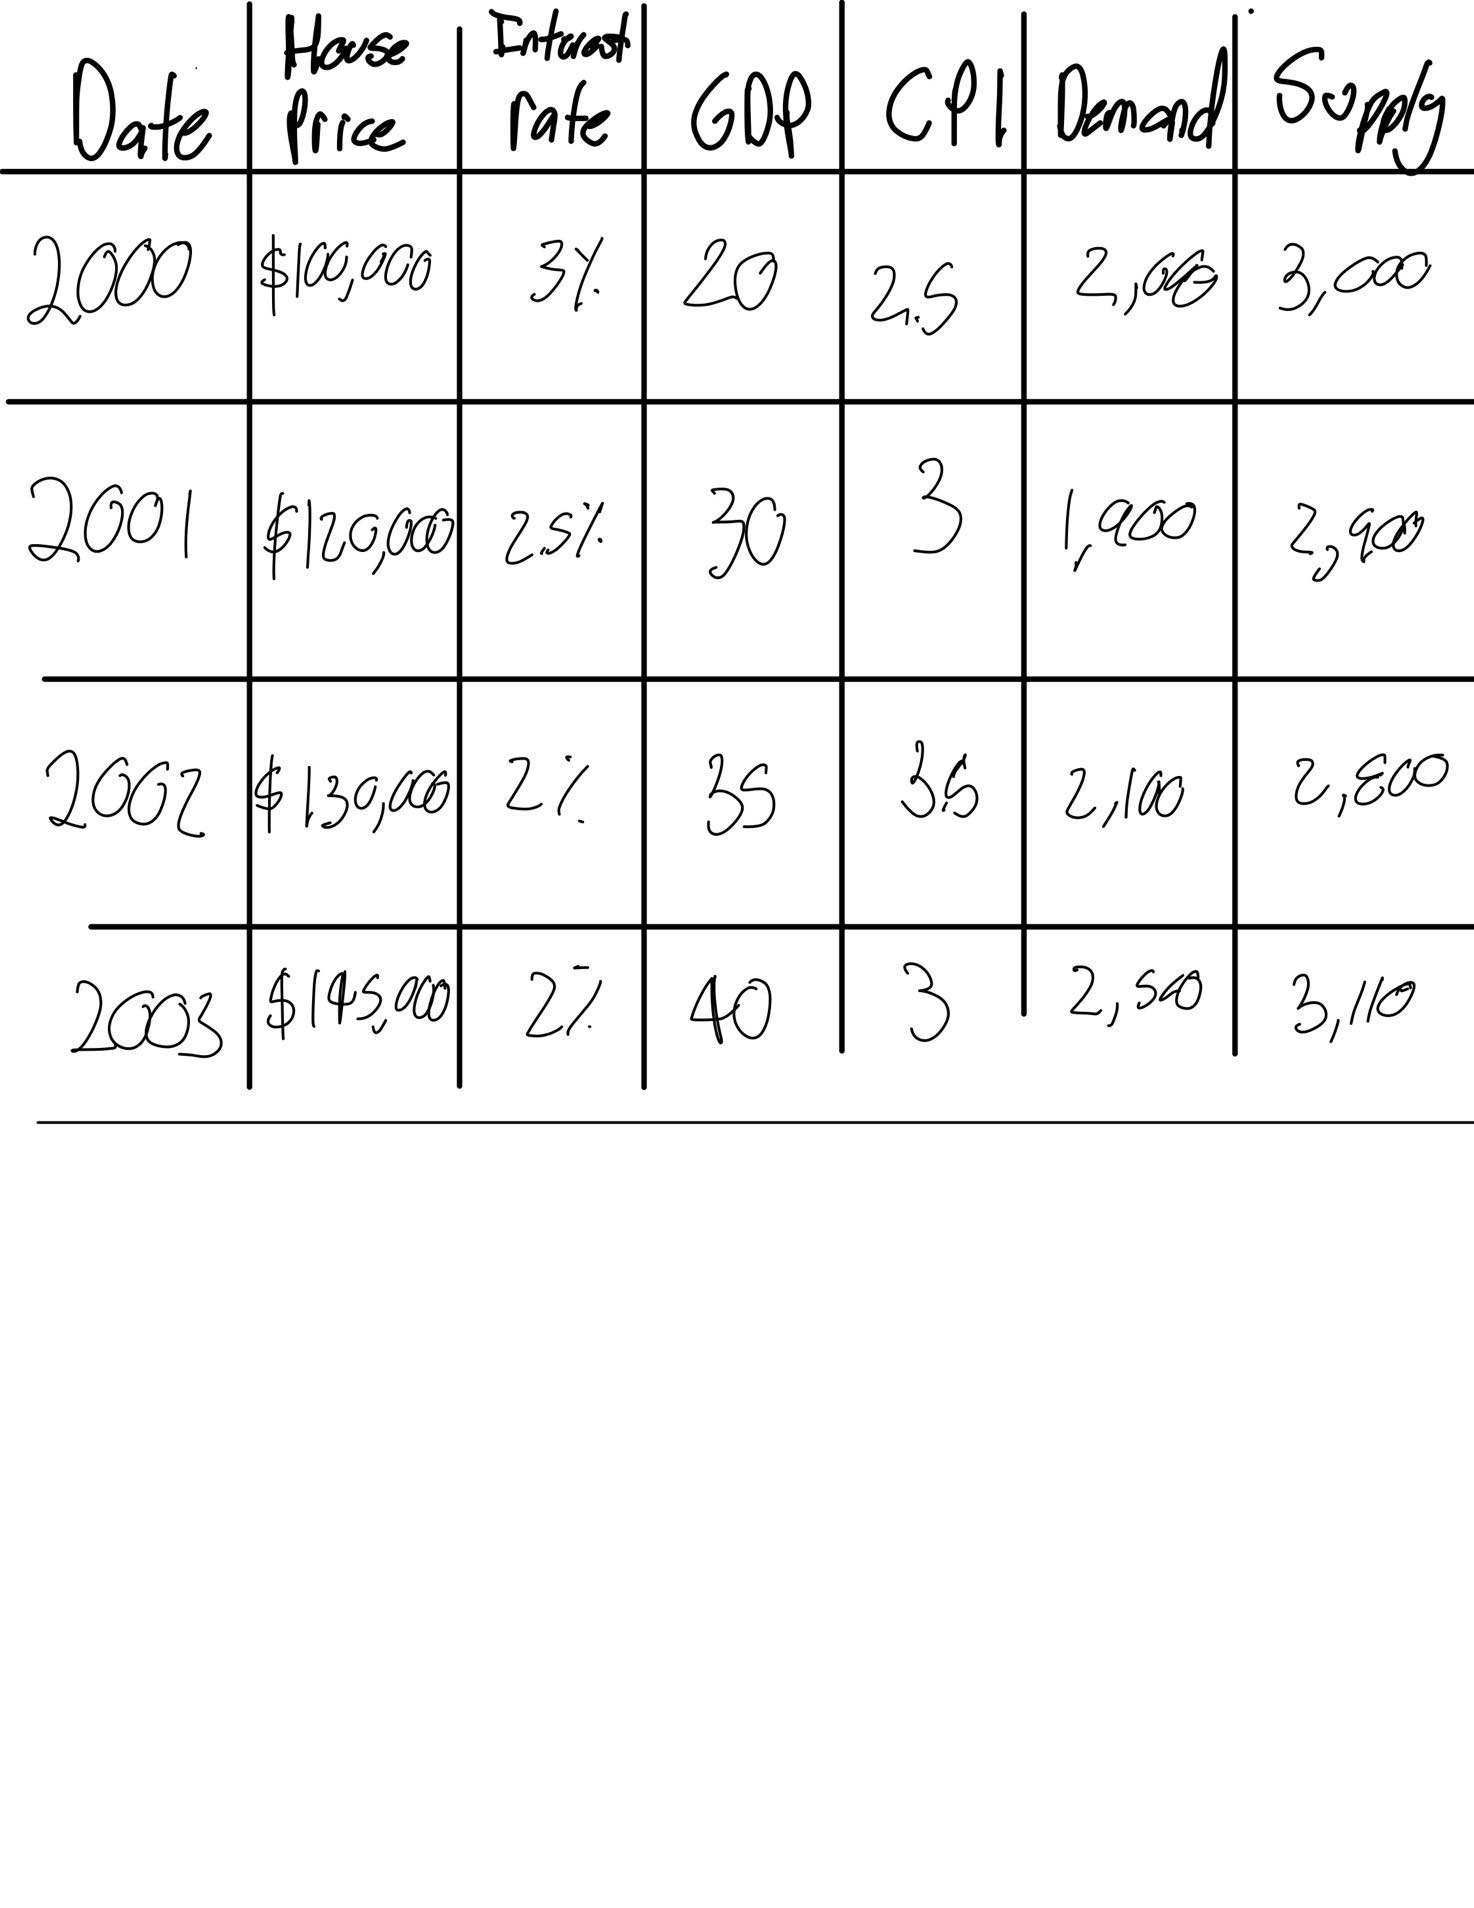 Date House Price Interest rate GDP CPI Demand Supply
2000 $100,000 3% 20 2.5 2,000 3,000
2001 $120,000 2.5% 30 3 1,900 2,900
2002 $130,000 2% 35 3.5 2,100 2,800
2003 $145,000 2% 40 3 2,500 3,110